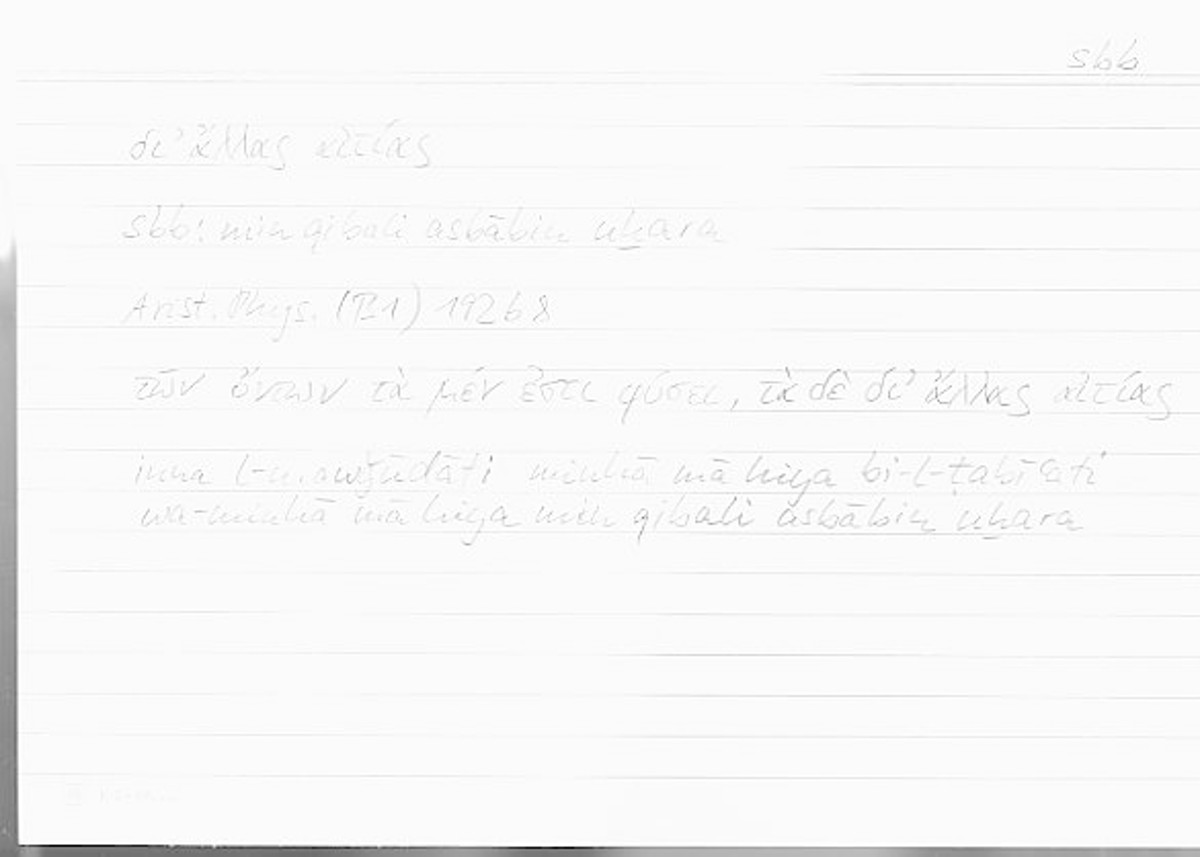 sbb
δι’ ἄλλας αἰτίας
sbb: min qibali asbābin uḫara
Arist. Phys. (B1) 192b8
τῶν ὄντων τὰ μέν ἐστι φύσει, τὰ δὲ δι’ ἄλλας αἰτίας
inna l-mawǧūdāti minhā mā hiya bi-l-ṭabīʿati
wa-minhā mā hiya min qibali asbābin uḫara